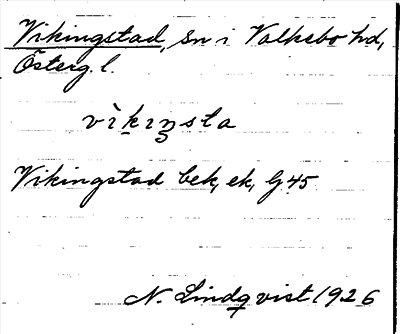 Vikingstad, sn i Valkebo hd,
Österg. l.
vìkiŋsta
Vikingstad bek, ek, G 45
N. Lindqvist 1926